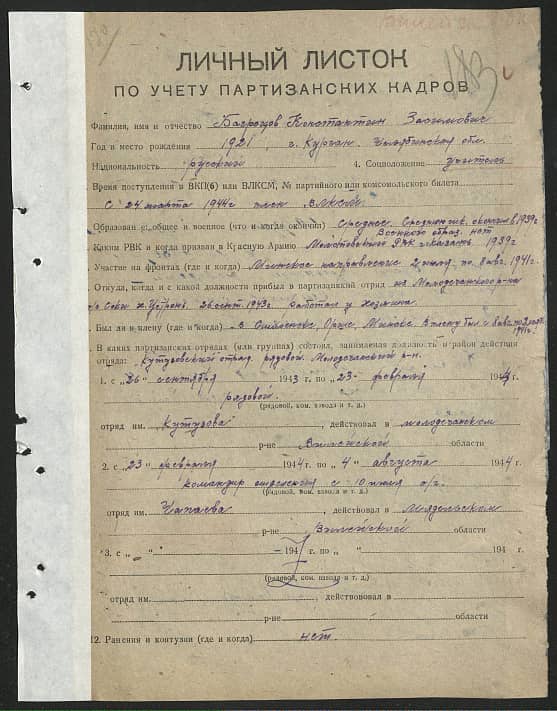 183
ЛИЧНЫЙ ЛИСТОК
ПО УЧЕТУ ПАРТИЗАНСКИХ КАДРОВ
Фамилия, имя и отчество Константин
Год и место рождения 1921, г. Курган. Челябинской обл.
Национальность русский 4. Соцположение учитель
Время поступления в ВКП(б) или ВЛКСМ, № партийного или комсомольского билета
С 24 марта 1944г член ВЛКСМ.
Образован е, общее и военное (что и когда окончил) Среднее. окончил в 1939г
Военного образ. нет
Каким РВК и когда призван в Красную Армию РВК г. Казань 1939г
Участие на фронтах (где и когда) Минское направление 2 июля по 8 авг. 1941г.
Откуда, когда и с какой должности прибыл в партизанский отряд из Молодечанского р-на
26 сент. 1943г. работал у хозяина.
Был ли в плену (где и когда) в Смоленске, Орше, Минске. В плену был с
В каких партизанских отрядах (или группах) состоял, занимаемая должность и район действия
отряда: Кутузовский отряд. рядовой. Молодечанский р-н.
1. с „26" сентября 1943 г. по „23" февраля 1944г.
рядовой.
(рядовой, ком. взвода и т. д.)
отряд им. Кутузова , действовал в молодечанском
р-не Вилейской области
2. с „23" февраля 1944 г. по „4" августа 1944 г.
командир отделения с 10 июня с/г.
(рядовой, ком. взвода и т. д.)
отряд им. Чапаева , действовал в Мядельском
р-не Вилейской области
3. с „ " 194 г. по „ " 194 г.
(рядовой, ком. взвода и т. д.)
отряд им. , действововал в
р-не области
12. Ранения и контузии (где и когда) нет.